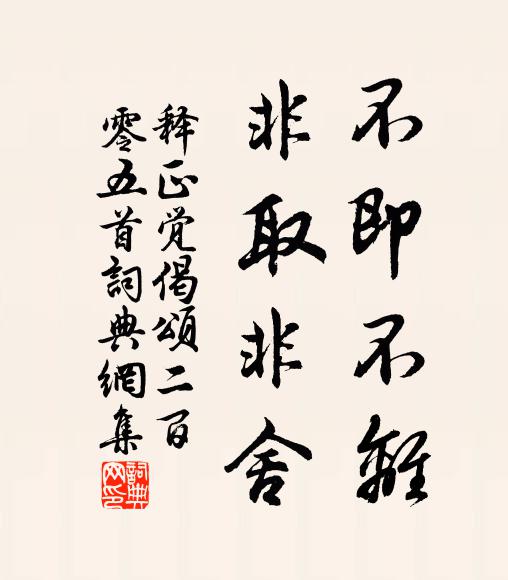 不即不離
非取非舍
释正觉偈頌二百
零五首詞典網集
詞典
网印